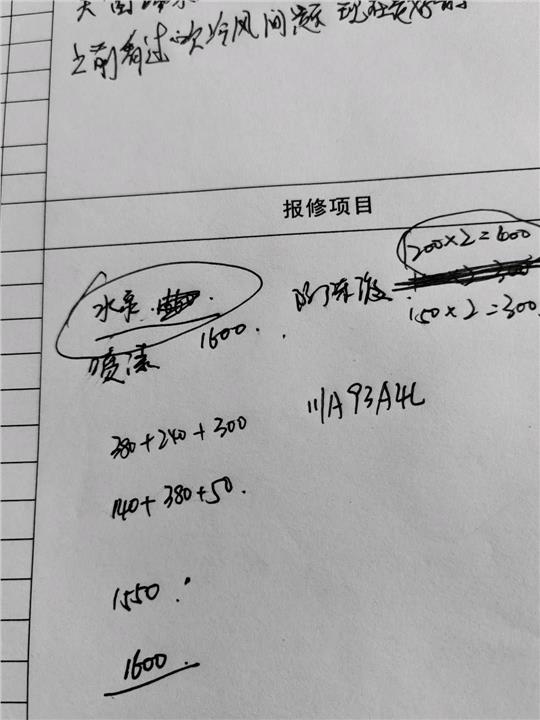 之前看过一次冷风问题 现在是好的
报修项目
200×2=600
水泵
防冻液
150×2=300
1600.
喷漆
川A93A4L
380+240+300
140+380+50.
1550.
1600.